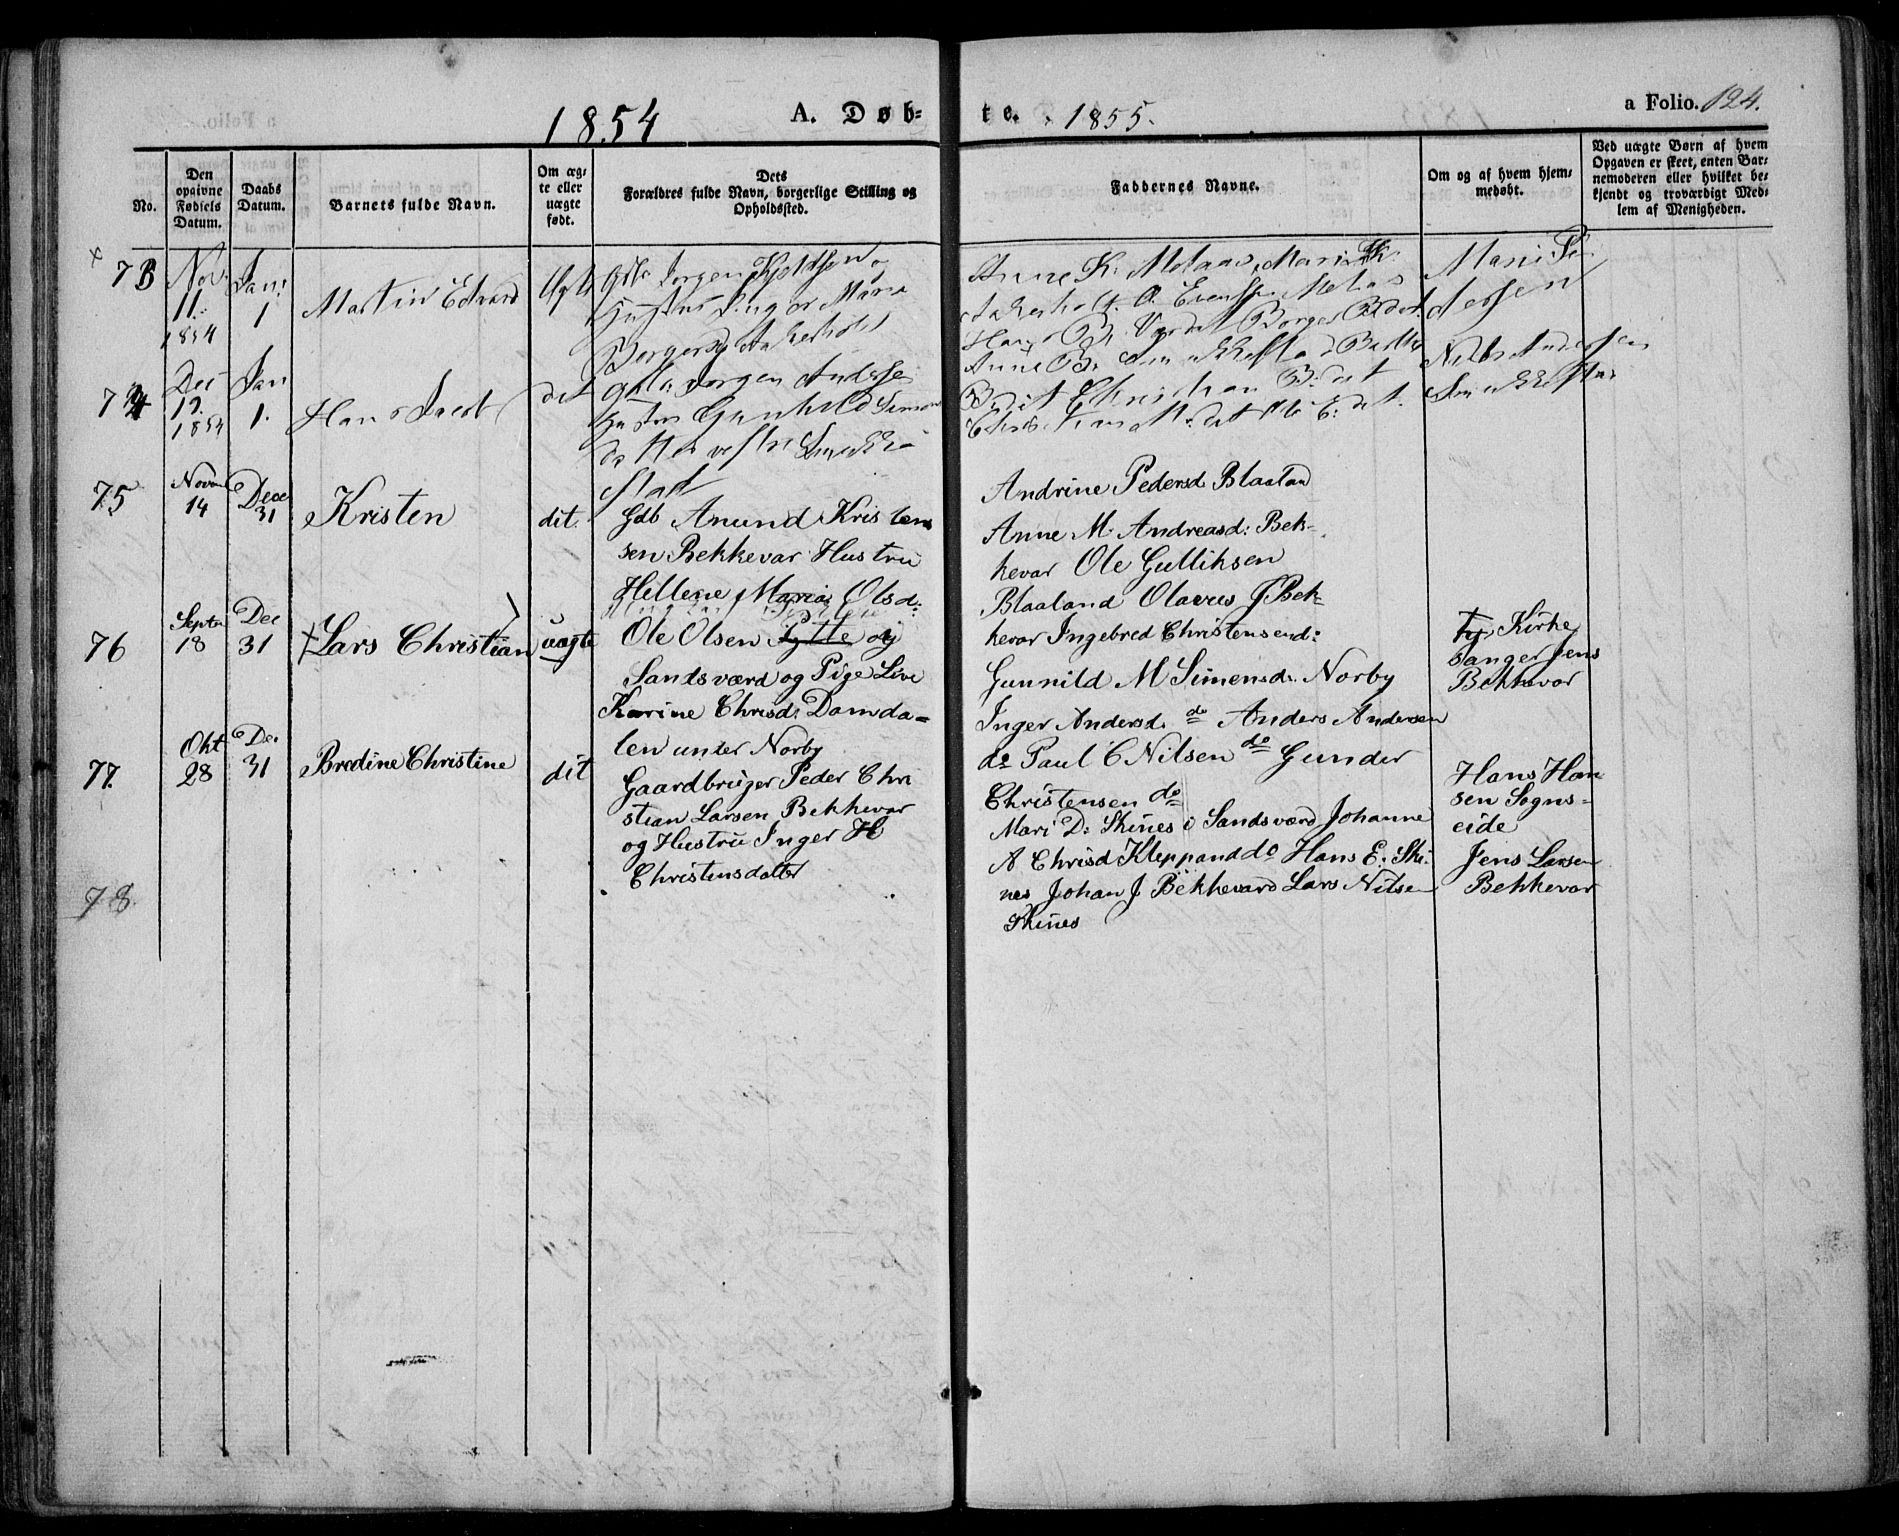 1854 A. Døb=
te. 1855. a Folio. 124.
No.
Den opgivne Fødsels Datum.
Daabs Datum.
Barnets fulde Navn.
Om ægte eller uægte født.
Dets
Forældres fulde Navn, borgerlige Stilling og
Opholdssted.
Faddernes Navne.
Om og af hvem hjem=
medøbt.
Ved uægte Børn af hvem
Opgaven er skeet, enten Bar=
nemoderen eller hvilket be=
kjendt og troværdigt Med=
lem af Menigheden.
73
Nov.
11.
1854
Jan:
1
Martin Edvard
Jørgen
Hustru Inger Maria
Anne K. Melaas, Mari
Evensen Melaas
Hans B. Borger B. det.
Mari Pe
dersen
74
Dec
1854
Jan
1.
Hans Jacob
det
Jørgen Anderse
Hustru Gunhild Simons
datter vestre
stad
Anne B.
B. det Christian B. det
Christian det Ole E. det.
Nils Andersen
75
Novem
14
Dece
31
Kristen
dit.
Gdb Anund Kristen
sen Bekkevar Hustru
Hellene Maria Olsd:
Andrine Pedersd Blaalan
Anne M. Andreasd: Bek=
kevar Ole Gulliksen
Blaaland Olavus J Bek=
kevar Ingebred Christensend:
76
Septe
18
Dec
31
Lars Christian
uægte
Ole Olsen Lytte og
Sandsværd og Pige Live
Karine Chrisd: Damda=
len under Norby
Gunnild M Simensd. Norby
Inger Andersd. do Anders Andersen
do Paul C Nilsen do Gunder
Christensen do
Kirke
sanger Jens
Bekkevar
77.
Okt
28
De.
31
Bredine Christine
dit
Gaardbruger Peder Chri
stian Larsen Bekkevar
og Hustru Inger H
Christensdatter
Mari D: Skines i Sandsværd Johanne
A Chrisd Kleppand do Hans E. Ski=
nes Johan J Bekkevard Lars Nilsen
Skines
Hans Han
sen Sogns=
eide
Jens Larsen
Bekkevar
78.